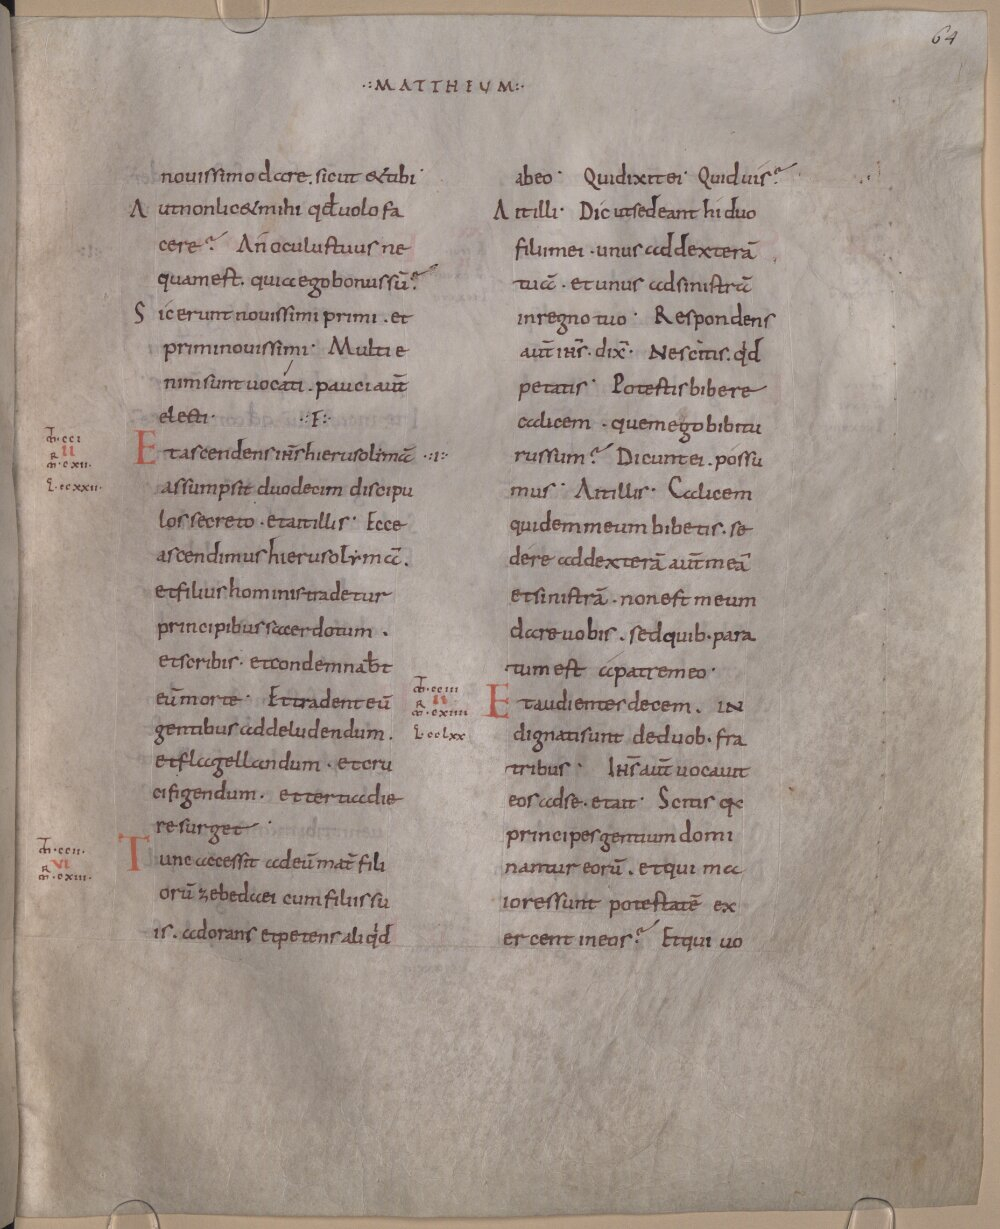 64
·:MATTHEUM:·
nouissimo dare. sicut &tibi·
Aut non lic& mihi qđ uolo fa
cere? An̄ oculus tuus ne
quam est. quia ego bonus sū?
Sic erunt nouissimi primi. et
primi nouissimi· Multi e
nim sunt uocati. pauci aut̄
electi· ·:F:·
Et ascendens ihs̄ hierusolimā ·:I:·
assumpsit duodecim discipu
los secreto· et ait illis· Ecce
ascendimus hierusolymā.
et filius hominis tradetur
principibus sacerdotum.
et scribis· et condemnab̄t
eū morte· Et tradent eū
gentibus ad deludendum.
et flagellandum· et cru
cifigendum· et tertia die
resurget·
Tunc accessit ad eū mat̄ fili
orū zebedaei cum filiis su
is. adorans et petens aliqđ
m̄·cci
II
R
m̄·cxii·
L·ccxxii·
m̄·ccii·
VI
R
m̄·cxiii·
ab eo· Qui dixit ei· Quid uis?
Ait illi· Dic ut sedeant hi duo
filii mei· unus ad dexterā
tuā· et unus ad sinistrā
in regno tuo· Respondens
aut̄ ihs̄· dix̄· Nescitis· qđ
petatis· Potestis bibere
calicem· quem ego bibitu
rus sum? Dicunt ei· possu
mus· Ait illis· Calicem
quidem meum bibetis· se
dere ad dexterā aut̄ meā
et sinistrā· non est meum
dare uobis· sed quib· para
tum est a patre meo·
Et audientes decem. IN
dignati sunt de duob· fra
tribus· Ihs̄ aut̄ uocauit
eos ad se· et ait· Scitis q̄a
principes gentium domi
nantur eorū· et qui ma
iores sunt potestatē ex
ercent in eos? Et qui uo
m̄·cciii
II
R
m̄·cxiiii
L·cclxx